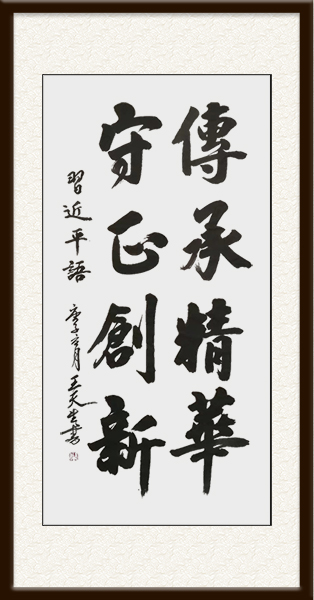 傳承精華
守正創新
習近平語
庚子六月王天生書